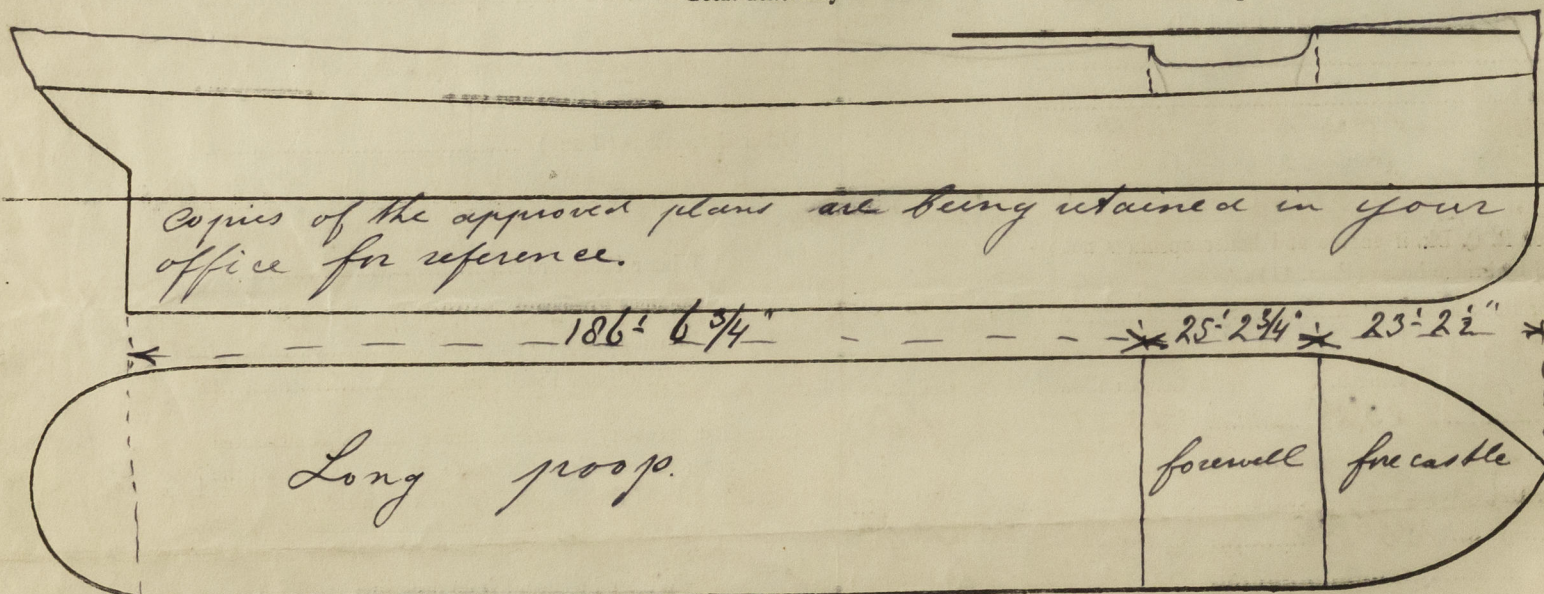 copies of the approved plans are being retained in your
office for reference.
186'- 6 3/4" 25'- 2 3/4" 23'- 2 1/2"
Long poop. forewell forecastle